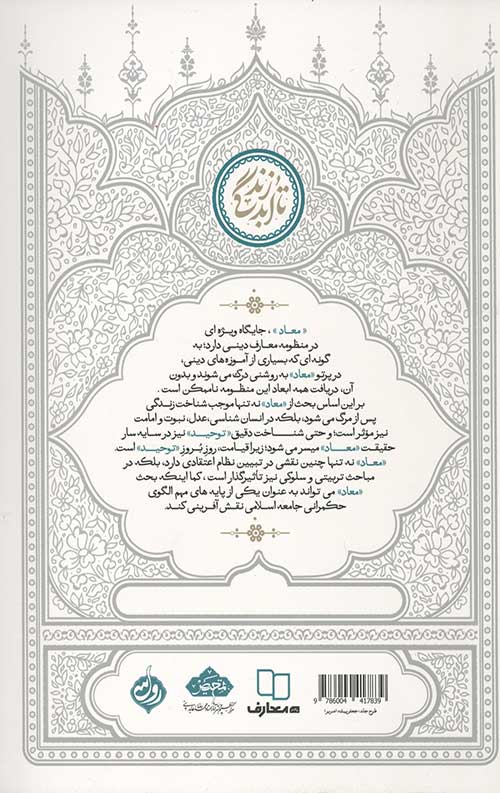 تا ابد زندگی
«معاد»، جایگاه ویژه ای
در منظومه معارف دینی دارد؛ به
گونه ای که بسیاری از آموزه های دینی،
در پرتو «معاد» به روشنی درک می شوند و بدون
آن، دریافت همه ابعاد این منظومه ناممکن است.
بر این اساس بحث از «معاد» نه تنها موجب شناخت زندگی
پس از مرگ می شود، بلکه در انسان شناسی، عدل، نبوت و امامت
نیز مؤثر است؛ و حتی شناخت دقیق «توحید» نیز در سایه سار
حقیقت «معاد» میسر می شود؛ زیرا قیامت، روز بُروز «توحید» است.
«معاد» نه تنها چنین نقشی در تبیین نظام اعتقادی دارد، بلکه در
مباحث تربیتی و سلوکی نیز تأثیرگذار است، کما اینکه بحث
«معاد» می تواند به عنوان یکی از پایه های مهم الگوی
حکمرانی جامعه اسلامی نقش آفرینی کند.
معارف
تمحیص
9 786004 417839
طرح جلد: